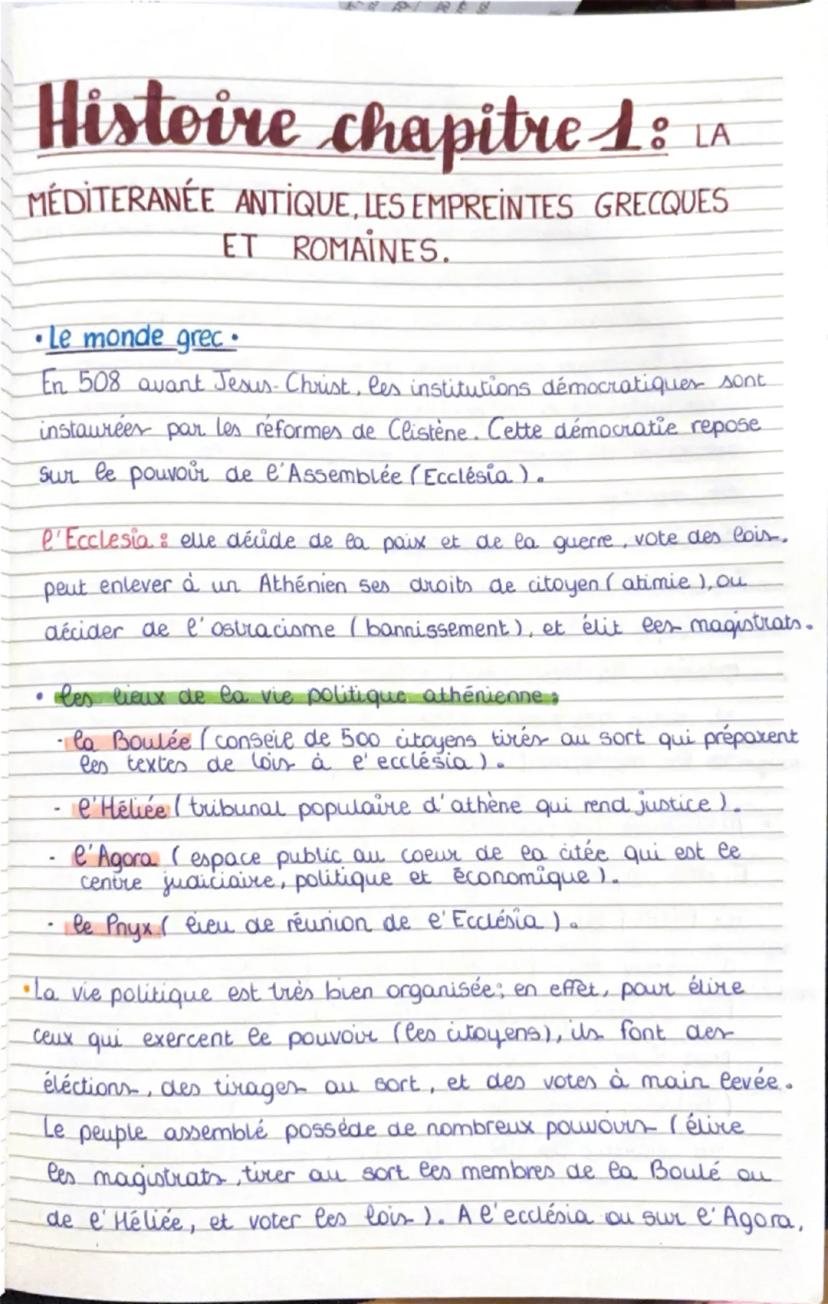 Histoire chapitre 1: LA
MÉDITERANÉE ANTIQUE, LES EMPREINTES GRECQUES
ET ROMAINES.
• Le monde grec •
En 508 avant Jesus-Christ, les institutions démocratiques sont
instaurées par les réformes de Clistène. Cette démocratie repose
sur le pouvoir de l'Assemblée (Ecclésia).
l'Ecclesia : elle décide de la paix et de la guerre, vote des lois.
peut enlever à un Athénien ses droits de citoyen (atimie), ou
décider de l'ostracisme (bannissement), et élit les magistrats.
• les lieux de la vie politique athénienne :
- la Boulée (conseil de 500 citoyens tirés au sort qui préparent
les textes de lois à l'ecclésia).
- l'Héliée (tribunal populaire d'athène qui rend justice).
- l'Agora (espace public au coeur de la citée qui est le
centre judiciaire, politique et économique).
- le Pnyx (lieu de réunion de l'Ecclésia).
• La vie politique est très bien organisée; en effet, pour élire
ceux qui exercent le pouvoir (les citoyens), ils font des
éléctions, des tirages au sort, et des votes à main levée.
Le peuple assemblé possède de nombreux pouvoirs (élire
les magistrats, tirer au sort les membres de la Boulé ou
de l'Héliée, et voter les lois). A l'ecclésia ou sur l'Agora,